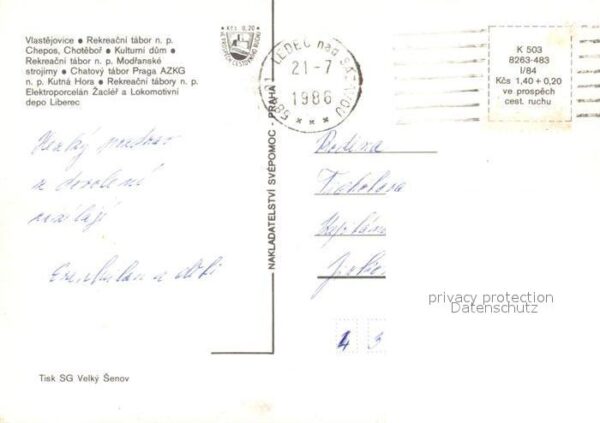 Vlastějovice • Rekreační tábor n. p.
Chepos, Chotěboř • Kulturní dům •
Rekreační tábor n. p. Modřanské
strojírny • Chatový tábor Praga AZKG
n. p. Kutná Hora • Rekreační tábory n. p.
Elektroporcelán Žacléř a Lokomotivní
depo Liberec
Kčs 0,20
VE PROSPĚCH CESTOVNÍHO RUCHU
LEDEČ nad SÁZAVOU
21-7
1986
K 503
8263-483
I/84
Kčs 1,40 + 0,20
ve prospěch
cest. ruchu
Hezký pozdrav
z dovolené
zasílají
NAKLADATELSTVÍ SVÉPOMOC - PRAHA
Rodina
privacy protection
Datenschutz
4 3
Tisk SG Velký Šenov